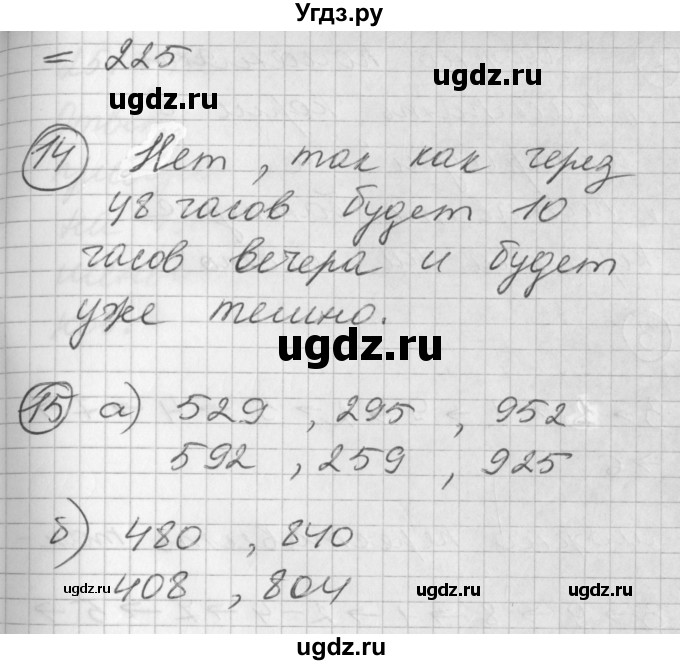 Угдз.ру
= 225
ugdz.ru
ugdz.ru
14 Нет, так как через
48 часов будет 10
часов вечера и будет
уже темно.
ugdz.ru
15 а) 529, 295, 952
592, 259, 925
б) 480, 840
408, 804
ugdz.ru
ugdz.ru
ugdz.ru
ugdz.ru